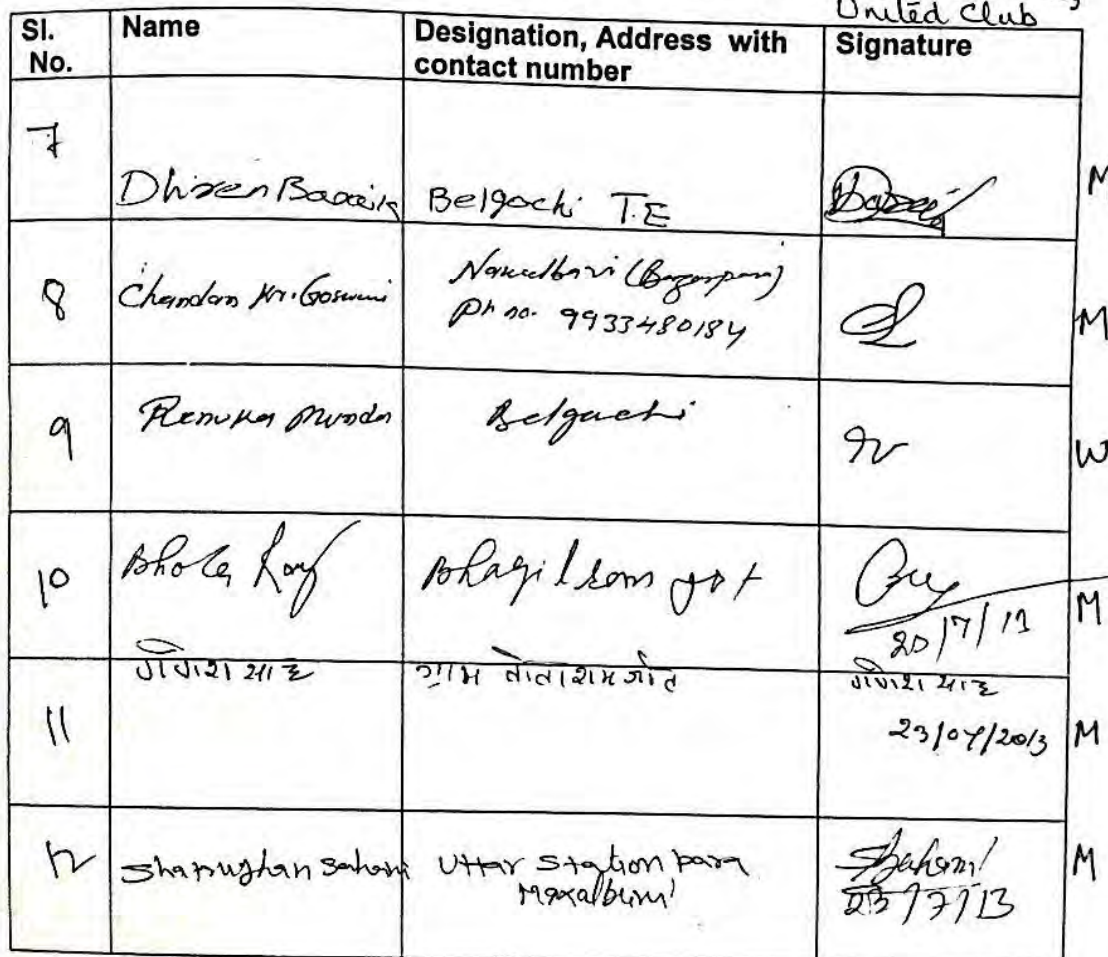 United Club
Sl. No. Name Designation, Address with contact number Signature
7 Dhiren Baraik Belgachi T.E M
8 Chandan Kr. Goswami Naxalbari (Bazarpara)
Ph no. 9933480184 M
9 Renuka Munda Belgachi W
10 Bhola Roy
20/7/13 M
गणेश साह ग्राम तोताराम जोत गणेश साह
11 23/07/2013 M
12 Shatrughan Sahani Uttar Station para Sahani M
23/7/13